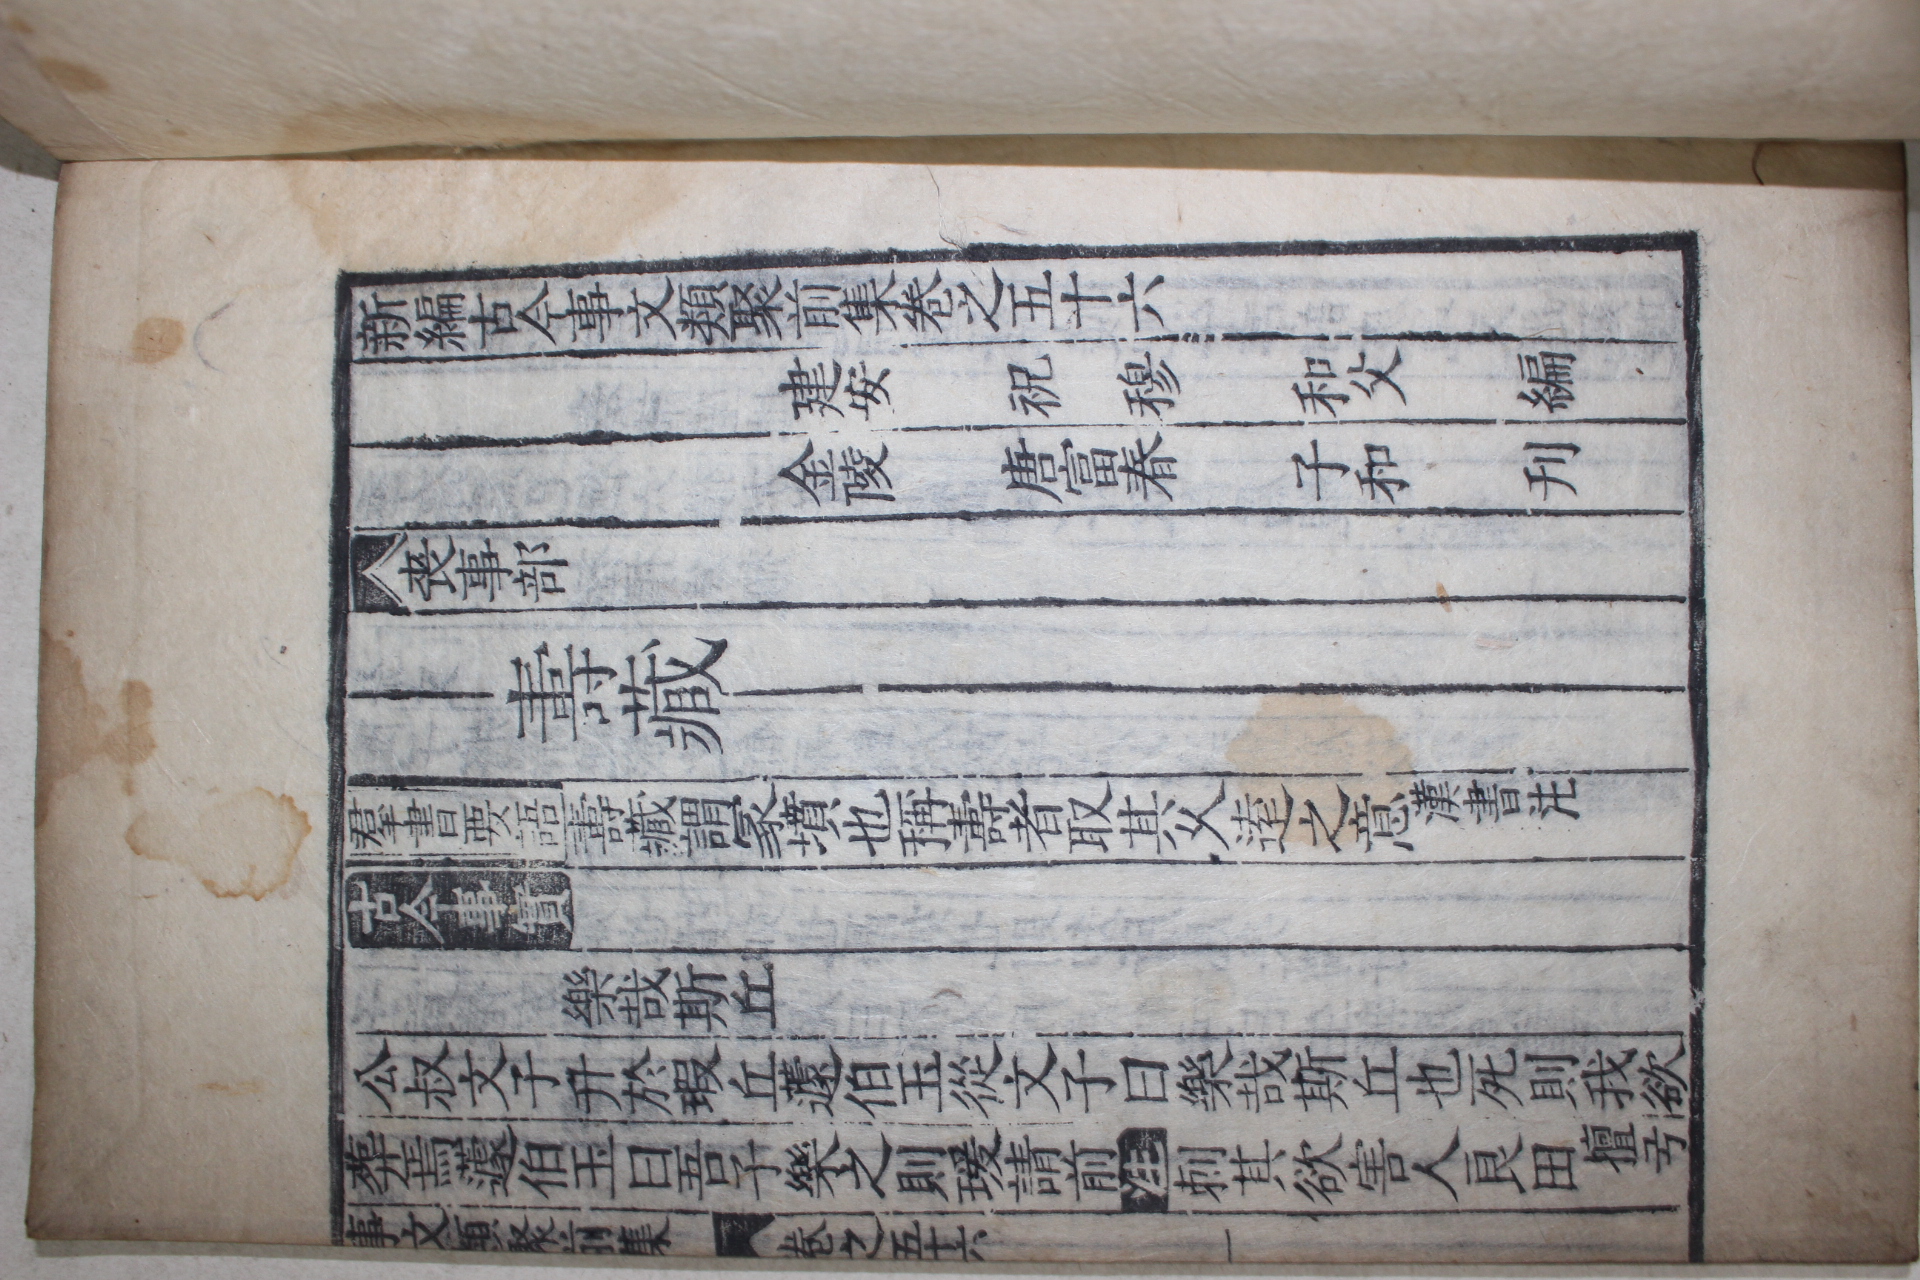 新編古今事文類聚前集卷之五十六
建安 祝 穆 和父 編
金陵 唐富春 子和 刊
喪事部
壽藏
羣書要語壽藏謂冢墳也稱壽者取其久遠之意漢書注
古今事實
樂哉斯丘
公叔文子升於瑕丘蘧伯玉從文子曰樂哉斯丘也死則我欲
葬焉蘧伯玉曰吾子樂之則瑗請前注刺其欲害人良田檀弓
事文類聚前集 卷之五十六 一